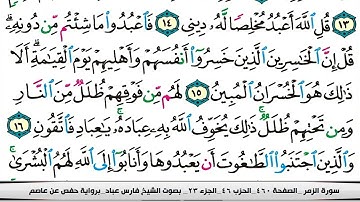 ١٣ قُلِ ٱللَّهَ أَعْبُدُ مُخْلِصًا لَّهُۥ دِينِي ١٤ فَٱعْبُدُوا۟ مَا شِئْتُم مِّن دُونِهِۦۗ
قُلْ إِنَّ ٱلْخَٰسِرِينَ ٱلَّذِينَ خَسِرُوٓا۟ أَنفُسَهُمْ وَأَهْلِيهِمْ يَوْمَ ٱلْقِيَٰمَةِۗ أَلَا
ذَٰلِكَ هُوَ ٱلْخُسْرَانُ ٱلْمُبِينُ ١٥ لَهُم مِّن فَوْقِهِمْ ظُلَلٌ مِّنَ ٱلنَّارِ
وَمِن تَحْتِهِمْ ظُلَلٌۚ ذَٰلِكَ يُخَوِّفُ ٱللَّهُ بِهِۦ عِبَادَهُۥۚ يَٰعِبَادِ فَٱتَّقُونِ ١٦
وَٱلَّذِينَ ٱجْتَنَبُوا۟ ٱلطَّٰغُوتَ أَن يَعْبُدُوهَا وَأَنَابُوٓا۟ إِلَى ٱللَّهِ لَهُمُ ٱلْبُشْرَىٰۚ
سورة الزمر_الصفحة ٤٦٠_الحزب ٤٦_الجزء ٢٣_ بصوت الشيخ فارس عباد_برواية حفص عن عاصم